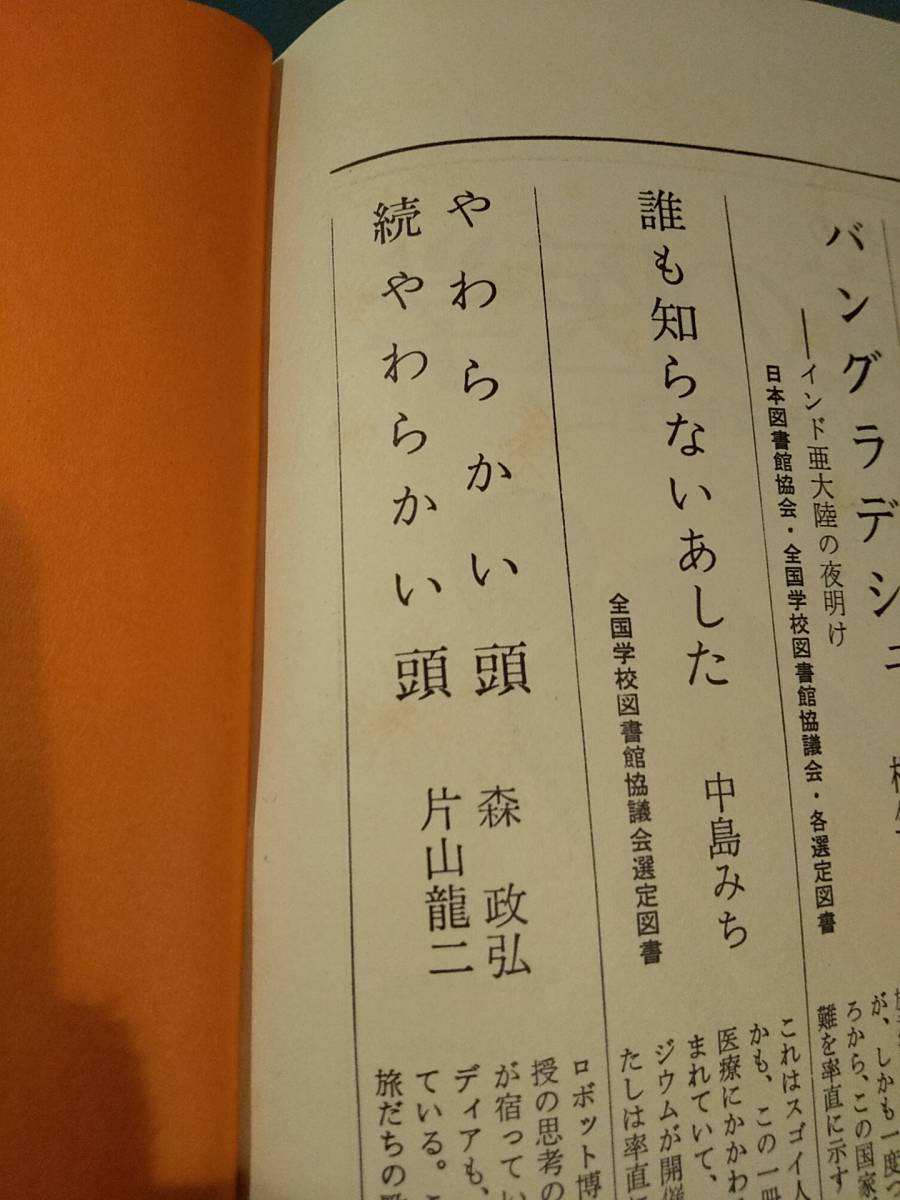 バングラデシュ
――インド亜大陸の夜明け
日本図書館協会・全国学校図書館協議会・各選定図書
が、しかも一度
ろから、この国家
難を率直に示す
誰も知らないあした
中島みち
全国学校図書館協議会選定図書
これはスゴイ人
かも、この一冊
医療にかかわ
まれていて、
ジウムが開催
たしは率直に
やわらかい頭
続やわらかい頭
森 政弘
片山龍二
ロボット博
授の思考の
が宿ってい
ディアも、
ている。
旅だちの